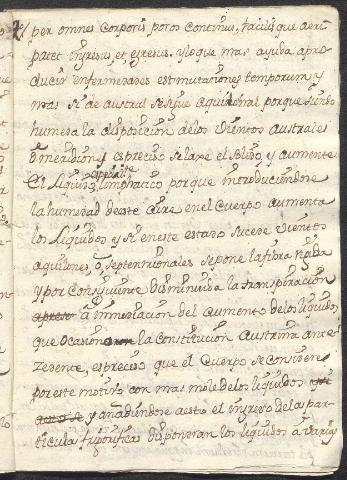 per omnes corporis poros continuus, facilisque aeri
patet ingresus, et egresus, y lo que mas ayuda a pro
ducir enfermedades est mutaciones temporum y
mas si de austral se sigue aquilonal porque siendo
humeda la disposicion de los vientos australes
o meridion.s es preciso se laxe el solido, y aumente
el liquido, limphatico porque introduciendose
la humedad de este aire en el cuerpo aumenta
los liquidos y si en este estado sucede vientos
aquilones, o septemtrionales se pone la fibra rigida
y por consiguiente disminuida la transpiracion
a inmediacion del aumento de los liquidos
que ocasiono la constitucion austrina ante
zedente, es preciso que el cuerpo se considere
por este motivo con mas mole de los liquidos
y añadiendose a esto el ingreso de las par-
ticulas frigorificas dispondran los liquidos a varias